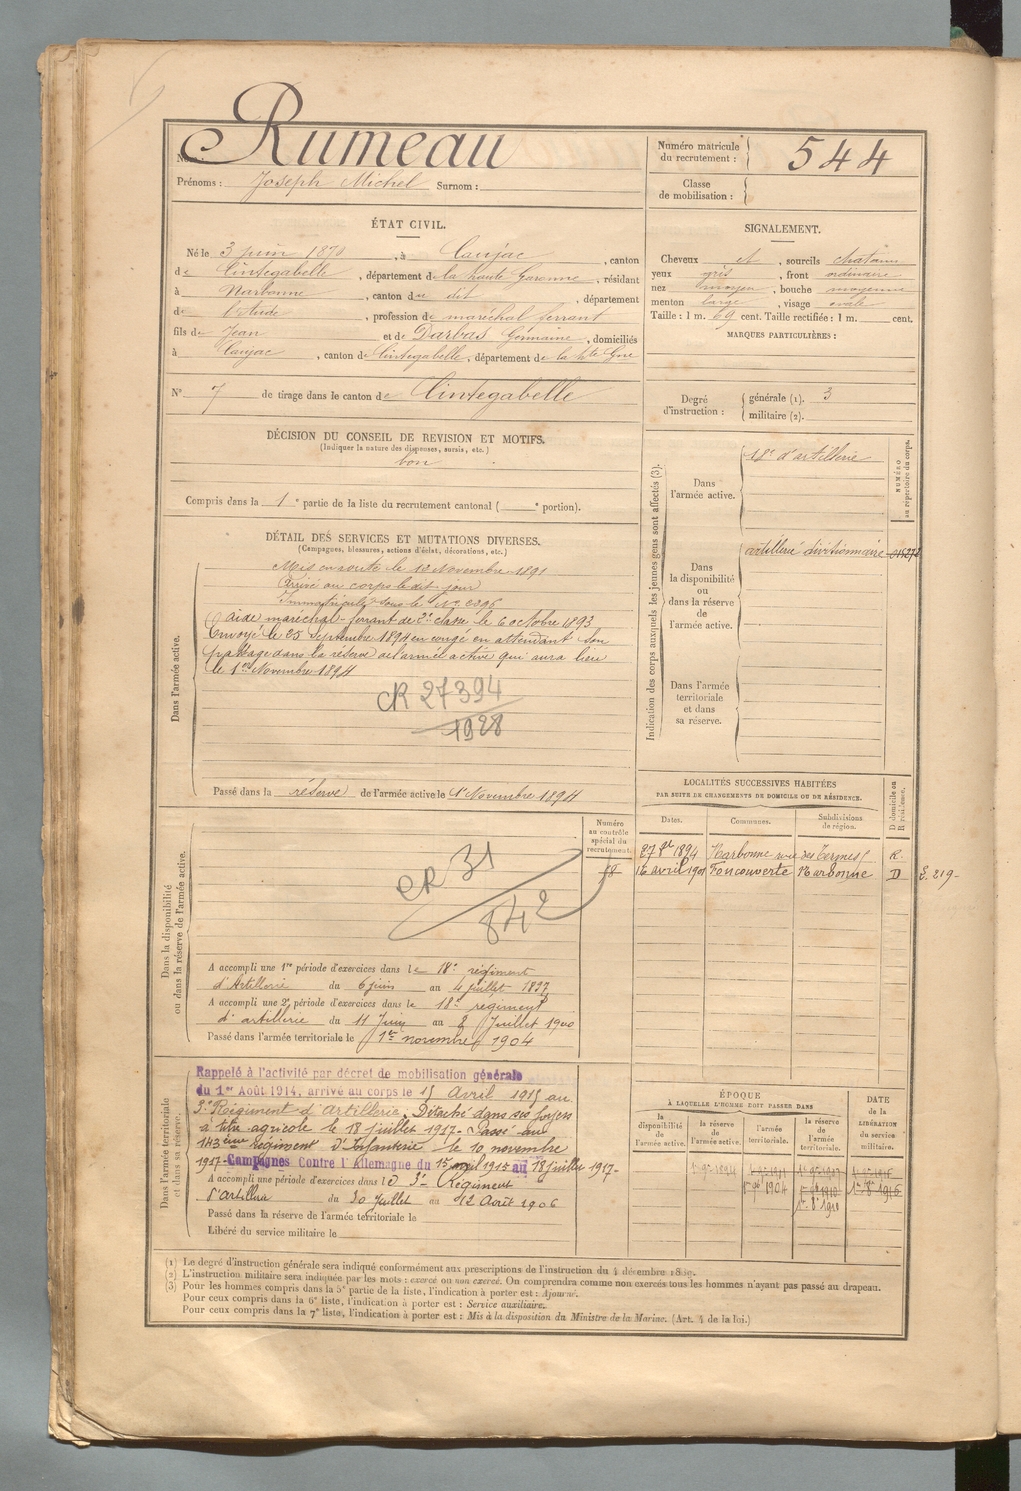 Nom: Rumeau
Prénoms : Joseph Michel Surnom :
Numéro matricule du recrutement : 544
Classe de mobilisation :
ÉTAT CIVIL.
Né le 3 juin 1870, à Caujac, canton
de Cintegabelle, département de la haute Garonne, résidant
à Narbonne, canton du dit, département
de l'Aude, profession de maréchal ferrant
fils de Jean et de Darbas Germaine, domiciliés
à Caujac, canton de Cintegabelle, département de la hte Gne
SIGNALEMENT.
Cheveux et, sourcils chatains
yeux gris, front ordinaire
nez moyen, bouche moyenne
menton large, visage ovale
Taille : 1 m. 69 cent. Taille rectifiée : 1 m. cent.
MARQUES PARTICULIÈRES :
N° 7 de tirage dans le canton de Cintegabelle
Degré d'instruction : générale (1). 3
militaire (2).
DÉCISION DU CONSEIL DE REVISION ET MOTIFS.
(Indiquer la nature des dispenses, sursis, etc.)
bon
Compris dans la 1e partie de la liste du recrutement cantonal ( e portion).
Indication des corps auxquels les jeunes gens sont affectés (3).
NUMÉRO au répertoire du corps.
Dans l'armée active.
18e d'artillerie
Dans la disponibilité ou dans la réserve de l'armée active.
artillerie divitionnaire
Dans l'armée territoriale et dans sa réserve.
DÉTAIL DES SERVICES ET MUTATIONS DIVERSES.
(Campagnes, blessures, actions d'éclat, décorations, etc.)
Dans l'armée active.
Mis en route le 12 Novembre 1891
Arrivé au corps le dit jour
Immatriculé sous le No 2396
aide maréchal-ferrant de 2e classe le 6 octobre 1893
Envoyé le 25 septembre 1894 en congé en attendant son
passage dans la réserve de l'armée active qui aura lieu
le 1er Novembre 1894
CR 27394
1928
Passé dans la réserve de l'armée active le 1er Novembre 1894
LOCALITÉS SUCCESSIVES HABITÉES
PAR SUITE DE CHANGEMENTS DE DOMICILE OU DE RÉSIDENCE.
Dates. Communes. Subdivisions de région. D domicile ou R résidence.
27 9e 1894 Narbonne rue des Termes R.
16 avril 1901 Foncouverte Narbonne D
219-
Dans la disponibilité ou dans la réserve de l'armée active.
Numéro au contrôle spécial du recrutement.
CR 31
842
A accompli une 1re période d'exercices dans le 18e régiment
d'Artillerie du 6 juin au 4 juillet 1897
A accompli une 2e période d'exercices dans le 18e régiment
d'artillerie du 11 Juin au 8 Juillet 1900
Passé dans l'armée territoriale le 1er novembre 1904
Dans l'armée territoriale et dans sa réserve.
Rappelé à l'activité par décret de mobilisation générale
du 1er Août 1914, arrivé au corps le 15 Avril 1915 au
3e Régiment d'Artillerie. Détaché dans ses foyers
à titre agricole le 18 juillet 1917- Passé au
143ème Régiment D'Infanterie, le 10 novembre
1917- Campagnes Contre l'Allemagne du 15 avril 1915 au 18 juillet 1917-
A accompli une période d'exercices dans le 3e Régiment
d'Artillerie du 30 Juillet au 12 Août 1906
Passé dans la réserve de l'armée territoriale le
Libéré du service militaire le
ÉPOQUE
À LAQUELLE L'HOMME DOIT PASSER DANS
la disponibilité de l'armée active. la réserve de l'armée active. l'armée territoriale. la réserve de l'armée territoriale.
DATE de la LIBÉRATION du service militaire.
(1) Le degré d'instruction générale sera indiqué conformément aux prescriptions de l'instruction du 4 décembre 1889.
(2) L'instruction militaire sera indiquée par les mots : exercé ou non exercé. On comprendra comme non exercés tous les hommes n'ayant pas passé au drapeau.
(3) Pour les hommes compris dans la 5e partie de la liste, l'indication à porter est : Ajourné.
Pour ceux compris dans la 6e liste, l'indication à porter est : Service auxiliaire.
Pour ceux compris dans la 7e liste, l'indication à porter est : Mis à la disposition du Ministre de la Marine. (Art. 4 de la loi.)